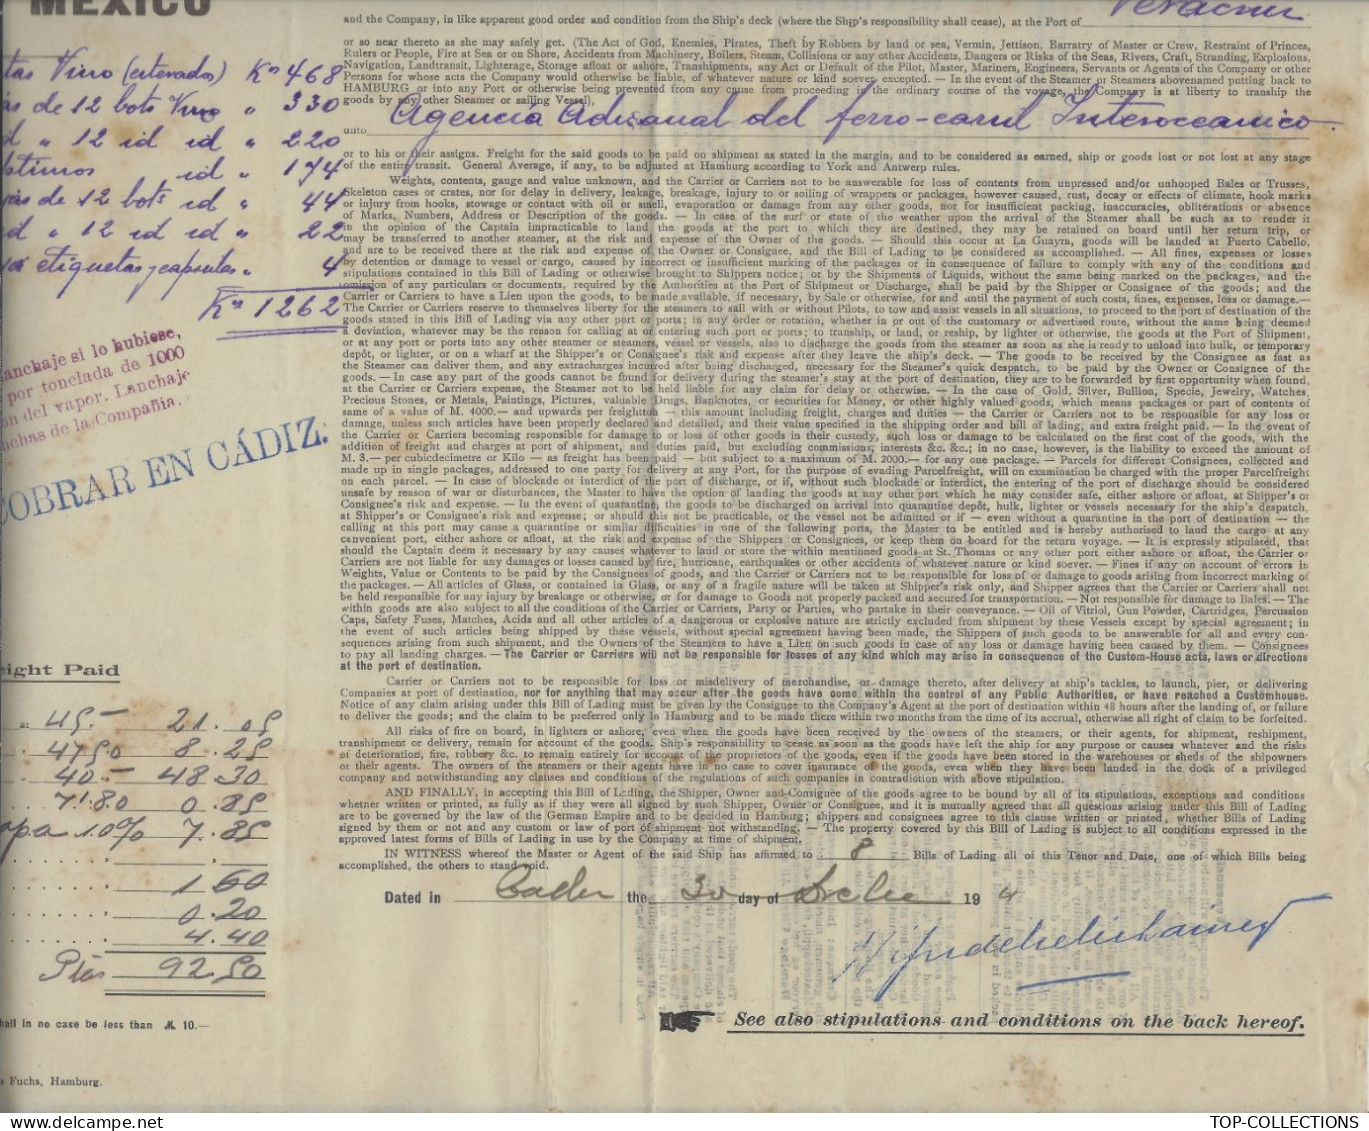 MEXICO
and the Company, in like apparent good order and condition from the Ship's deck (where the Ship's responsibility shall cease), at the Port of Veracruz
or so near thereto as she may safely get. (The Act of God, Enemies, Pirates, Theft by Robbers by land or sea, Vermin, Jettison, Barratry of Master or Crew, Restraint of Princes,
Rulers or People, Fire at Sea or on Shore, Accidents from Machinery, Boilers, Steam, Collisions or any other Accidents, Dangers or Risks of the Seas, Rivers, Craft, Stranding, Explosions,
Navigation, Landtransit, Lighterage, Storage afloat or ashore, Transhipments, any Act or Default of the Pilot, Master, Mariners, Engineers, Servants or Agents of the Company or other
Persons for whose acts the Company would otherwise be liable, of whatever nature or kind soever, excepted. — In the event of the Steamer or Steamers abovenamed putting back to
HAMBURG or into any Port or otherwise being prevented from any cause from proceeding in the ordinary course of the voyage, the Company is at liberty to tranship the
goods by any other Steamer or sailing Vessel),
unto Agencia Aduanal del ferro-carril Interoceanico.
or to his or their assigns. Freight for the said goods to be paid on shipment as stated in the margin, and to be considered as earned, ship or goods lost or not lost at any stage
of the entire transit. General Average, if any, to be adjusted at Hamburg according to York and Antwerp rules.
Weights, contents, gauge and value unknown, and the Carrier or Carriers not to be answerable for loss of contents from unpressed and/or unhooped Bales or Trusses,
Skeleton cases or crates, nor for delay in delivery, leakage, breakage, injury to or soiling of wrappers or packages, however caused, rust, decay or effects of climate, hook marks
or injury from hooks, stowage or contact with oil or smell, evaporation or damage from any other goods, nor for insufficient packing, inaccuracies, obliterations or absence
of Marks, Numbers, Address or Description of the goods. — In case of the surf or state of the weather upon the arrival of the Steamer shall be such as to render it
in the opinion of the Captain impracticable to land the goods at the port to which they are destined, they may be retained on board until her return trip, or
may be transferred to another steamer, at the risk and expense of the Owner of the goods. — Should this occur at La Guayra, goods will be landed at Puerto Cabello,
and are to be received there at the risk and expense of the Owner or Consignee, and the Bill of Lading to be considered as accomplished. — All fines, expenses or losses
by detention or damage to vessel or cargo, caused by incorrect or insufficient marking of the packages or in consequence of failure to comply with any of the conditions and
stipulations contained in this Bill of Lading or otherwise brought to Shippers notice; or by the Shipments of Liquids, without the same being marked on the packages, and the
omission of any particulars or documents, required by the Authorities at the Port of Shipment or Discharge, shall be paid by the Shipper or Consignee of the goods; and the
Carrier or Carriers to have a Lien upon the goods, to be made available, if necessary, by Sale or otherwise, for and until the payment of such costs, fines, expenses, loss or damage.—
The Carrier or Carriers reserve to themselves liberty for the steamers to sail with or without Pilots, to tow and assist vessels in all situations, to proceed to the port of destination of the
goods stated in this Bill of Lading via any other port or ports; in any order or rotation, whether in or out of the customary or advertised route, without the same being deemed
a deviation, whatever may be the reason for calling at or entering such port or ports; to tranship, or land, or reship, by lighter or otherwise, the goods at the Port of Shipment,
or at any port or ports into any other steamer or steamers, vessel or vessels, also to discharge the goods from the steamer as soon as she is ready to unload into hulk, or temporary
depôt, or lighter, or on a wharf at the Shipper's or Consignee's risk and expense after they leave the ship's deck. — The goods to be received by the Consignee as fast as
the Steamer can deliver them, and any extracharges incurred after being discharged, necessary for the Steamer's quick despatch, to be paid by the Owner or Consignee of the
goods. — In case any part of the goods cannot be found for delivery during the steamer's stay at the port of destination, they are to be forwarded by first opportunity when found,
at the Carrier or Carriers expense, the Steamer not to be held liable for any claim for delay or otherwise. — In the case of Gold, Silver, Bullion, Specie, Jewelry, Watches,
Precious Stones, or Metals, Paintings, Pictures, valuable Drugs, Banknotes, or securities for Money, or other highly valued goods, which means packages or part of contents of
same of a value of M. 4000.— and upwards per freightton — this amount including freight, charges and duties — the Carrier or Carriers not to be responsible for any loss or
damage, unless such articles have been properly declared and detailed, and their value specified in the shipping order and bill of lading, and extra freight paid. — In the event of
the Carrier or Carriers becoming responsible for damage to or loss of other goods in their custody, such loss or damage to be calculated on the first cost of the goods, with the
addition of freight and charges at port of shipment, and duties paid, but excluding commissions; interests &c. &c.; in no case, however, is the liability to exceed the amount of
M. 3.— per cubicdecimetre or Kilo — as freight has been paid — but subject to a maximum of M. 2000.— for any one package. — Parcels for different Consignees, collected and
made up in single packages, addressed to one party for delivery at any Port, for the purpose of evading Parcelfreight, will on examination be charged with the proper Parcelfreight
on each parcel. — In case of blockade or interdict of the port of discharge, or if, without such blockade or interdict, the entering of the port of discharge should be considered
unsafe by reason of war or disturbances, the Master to have the option of landing the goods at any other port which he may consider safe, either ashore or afloat, at Shipper's or
Consignee's risk and expense. — In the event of quarantine, the goods to be discharged on arrival into quarantine depôt, hulk, lighter or vessels necessary for the ship's despatch,
at Shipper's or Consignee's risk and expense; or should this not be practicable, or the vessel not be admitted or if — even without a quarantine in the port of destination — the
calling at this port may cause a quarantine or similar difficulties in one of the following ports, the Master to be entitled and is hereby authorised to land the cargo at any
convenient port, either ashore or afloat, at the risk and expense of the Shippers or Consignees, or keep them on board for the return voyage. — It is expressly stipulated, that
should the Captain deem it necessary by any causes whatever to land or store the within mentioned goods at St. Thomas or any other port either ashore or afloat, the Carrier or
Carriers are not liable for any damages or losses caused by fire, hurricane, earthquakes or other accidents of whatever nature or kind soever. — Fines if any on account of errors in
Weights, Value or Contents to be paid by the Consignees of goods, and the Carrier or Carriers not to be responsible for loss of or damage to goods arising from incorrect marking of
the packages. — All articles of Glass, or contained in Glass, or any of a fragile nature will be taken at Shipper's risk only, and Shipper agrees that the Carrier or Carriers shall not
be held responsible for any injury by breakage or otherwise, or for damage to Goods not properly packed and secured for transportation. — Not responsible for damage to Bales. — The
within goods are also subject to all the conditions of the Carrier or Carriers, Party or Parties, who partake in their conveyance. — Oil of Vitriol, Gun Powder, Cartridges, Percussion
Caps, Safety Fuses, Matches, Acids and all other articles of a dangerous or explosive nature are strictly excluded from shipment by these Vessels except by special agreement; in
the event of such articles being shipped by these vessels, without special agreement having been made, the Shippers of such goods to be answerable for all and every con-
sequences arising from such shipment, and the Owners of the Steamers to have a Lien on such goods in case of any loss or damage having been caused by them. — Consignees
to pay all landing charges. — The Carrier or Carriers will not be responsible for losses of any kind which may arise in consequence of the Custom-House acts, laws or directions
at the port of destination.
Carrier or Carriers not to be responsible for loss or misdelivery of merchandise, or damage thereto, after delivery at ship's tackles, to launch, pier, or delivering
Companies at port of destination, nor for anything that may occur after the goods have come within the control of any Public Authorities, or have reached a Customhouse.
Notice of any claim arising under this Bill of Lading must be given by the Consignee to the Company's Agent at the port of destination within 48 hours after the landing of, or failure
to deliver the goods; and the claim to be preferred only in Hamburg and to be made there within two months from the time of its accrual, otherwise all right of claim to be forfeited.
All risks of fire on board, in lighters or ashore, even when the goods have been received by the owners of the steamers, or their agents, for shipment, reshipment,
transhipment or delivery, remain for account of the goods. Ship's responsibility to cease as soon as the goods have left the ship for any purpose or causes whatever and the risks
of deterioration, fire, robbery &c. to remain entirely for account of the proprietors of the goods, even if the goods have been stored in the warehouses or sheds of the shipowners
or their agents. The owners of the steamers or their agents have in no case to cover insurance of the goods, even when they have been landed in the dock of a privileged
company and notwithstanding any clauses and conditions of the regulations of such companies in contradiction with above stipulation.
AND FINALLY, in accepting this Bill of Lading, the Shipper, Owner and Consignee of the goods agree to be bound by all of its stipulations, exceptions and conditions
whether written or printed, as fully as if they were all signed by such Shipper, Owner or Consignee, and it is mutually agreed that all questions arising under this Bill of Lading
are to be governed by the law of the German Empire and to be decided in Hamburg; shippers and consignees agree to this clause written or printed, whether Bills of Lading
signed by them or not and any custom or law of port of shipment not withstanding. — The property covered by this Bill of Lading is subject to all conditions expressed in the
approved latest forms of Bills of Lading in use by the Company at time of shipment.
IN WITNESS whereof the Master or Agent of the said Ship has affirmed to 8 Bills of Lading all of this Tenor and Date, one of which Bills being
accomplished, the others to stand void.
Dated in Cadiz the 30 day of Dcbre 190 4
See also stipulations and conditions on the back hereof.
tas Vino (esterados) Kos 468
as de 12 bots Vino " 330
id " 12 id id " 220
ptimos id " 174
jas de 12 bots id " 44
id " 12 id id " 22
etiquetas y capsulas " 4
Kos 1262
anchaje si lo hubiese,
por tonelada de 1000
on del vapor. Lanchaje
nchas de la Compañia.
COBRAR EN CÁDIZ.
eight Paid
at 45.- 21.05
47.50 8.25
40.- 48.30
71.80 0.85
apa 10% 7.85
1.60
0.20
4.40
Ptas 92.50
hall in no case be less than M. 10.—
Fuchs, Hamburg.
TOP-COLLECTIONS